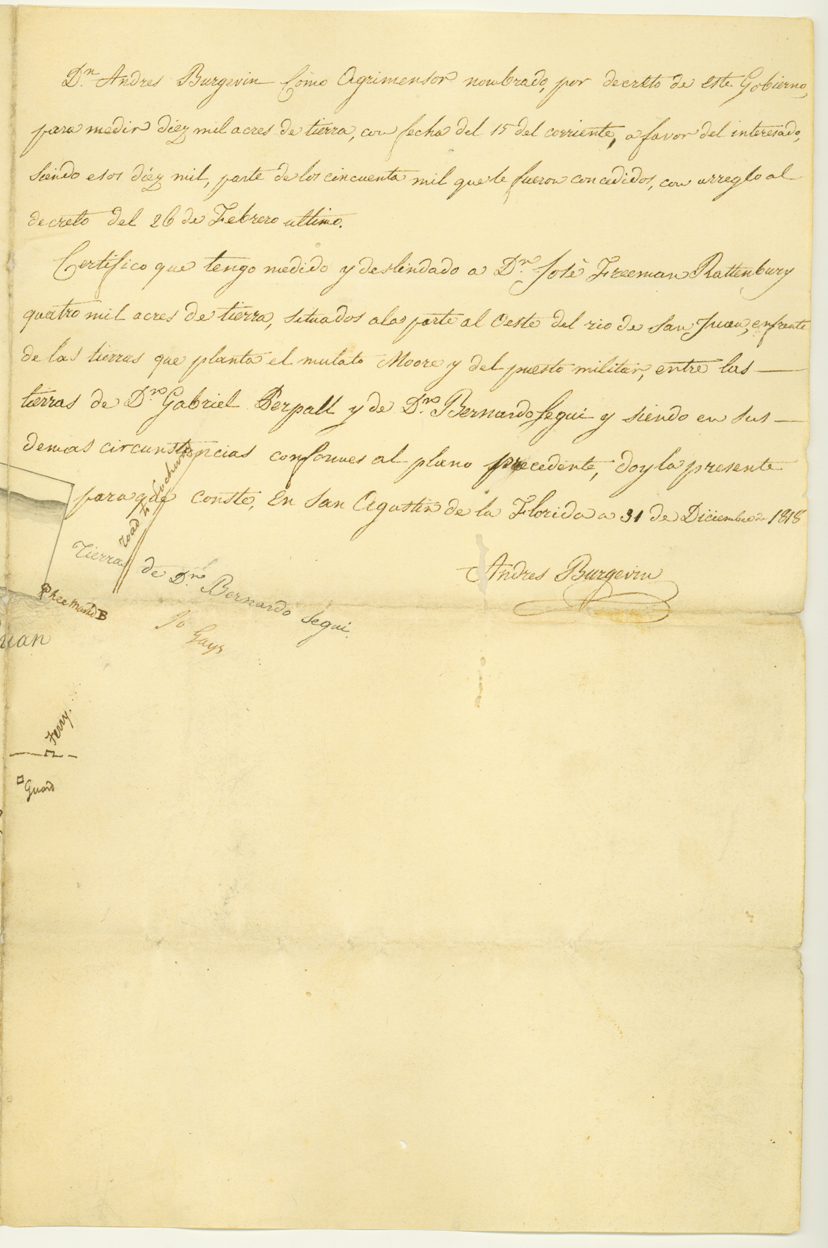 Dn. Andres Burgevin Como Agrimensor nombrado, por decreto de este Gobierno,
para medir diéz mil acres de tierra, con fecha del 15 del corriente, a favor del interesado,
siendo esos diéz mil, parte de los cincuenta mil que le fueron concedidos, con arreglo al
decreto del 26 de Febrero ultimo.
Certifico que tengo medido y deslindado a Dn. José Freeman Rattenbury
quatro mil acres de tierra, situados a la parte al Oeste del rio de San Juan, enfrente
de las tierras que planta el mulato Moore y del puesto militar, entre las —
tierras de Dn. Gabriel Perpall y de Dn. Bernardo Segui y siendo en sus —
demas circunstancias conformes al plano precedente, doy la presente
para que conste, En San Agustin de la Florida a 31 de Diciembre de 1818
Andres Burgevin
Road to
Tierras de Dn. Bernardo Segui
Jo Gays
uan
Ferry.
Guard